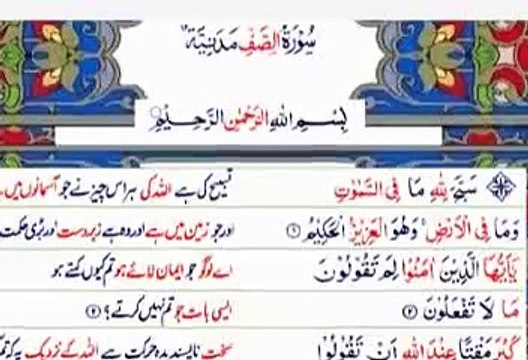 سُوْرَةُ الصَّفِّ مَدَنِيَّةٌ
بِسْمِ اللهِ الرَّحْمٰنِ الرَّحِيْمِ
سَبَّحَ لِلّٰهِ مَا فِي السَّمٰوٰتِ تسبیح کی ہے اللہ کی ہر اس چیز نے جو آسمانوں میں ہے
وَمَا فِي الْاَرْضِ ۚ وَهُوَ الْعَزِيْزُ الْحَكِيْمُ ۝۱ اور جو زمین میں ہے اور وہ ہے زبردست اور بڑی حکمت
يٰٓاَيُّهَا الَّذِيْنَ اٰمَنُوْا لِمَ تَقُوْلُوْنَ اے لوگو جو ایمان لائے ہو تم کیوں کہتے ہو
مَا لَا تَفْعَلُوْنَ ۝۲ ایسی بات جو تم نہیں کرتے؟ ۝۲
كَبُرَ مَقْتًا عِنْدَ اللهِ اَنْ تَقُوْلُوْا سخت ناپسندیدہ حرکت ہے اللہ کے نزدیک یہ کہ تم